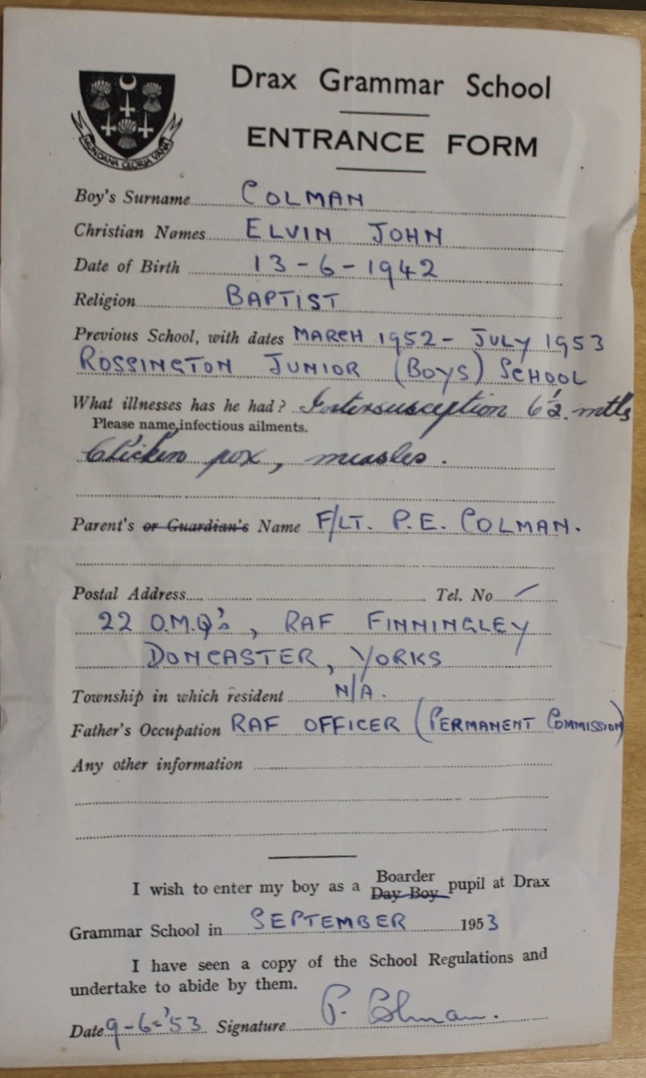 Drax Grammar School
ENTRANCE FORM
MUNDANA GLORIA VANA
Boy's Surname COLMAN
Christian Names ELVIN JOHN
Date of Birth 13-6-1942
Religion BAPTIST
Previous School, with dates MARCH 1952 - JULY 1953
ROSSINGTON JUNIOR (BOYS) SCHOOL
What illnesses has he had? Intersusception 6½ mths
Please name, infectious ailments.
Chicken pox, measles.
Parent's or Guardian's Name F/LT. P.E. COLMAN.
Postal Address Tel. No /
22 O.M.Q's, RAF FINNINGLEY
DONCASTER, YORKS
Township in which resident N/A.
Father's Occupation RAF OFFICER (PERMANENT COMMISSION)
Any other information
I wish to enter my boy as a Boarder Day Boy pupil at Drax
Grammar School in SEPTEMBER 1953
I have seen a copy of the School Regulations and
undertake to abide by them.
Date 9-6-'53 Signature P. Colman.